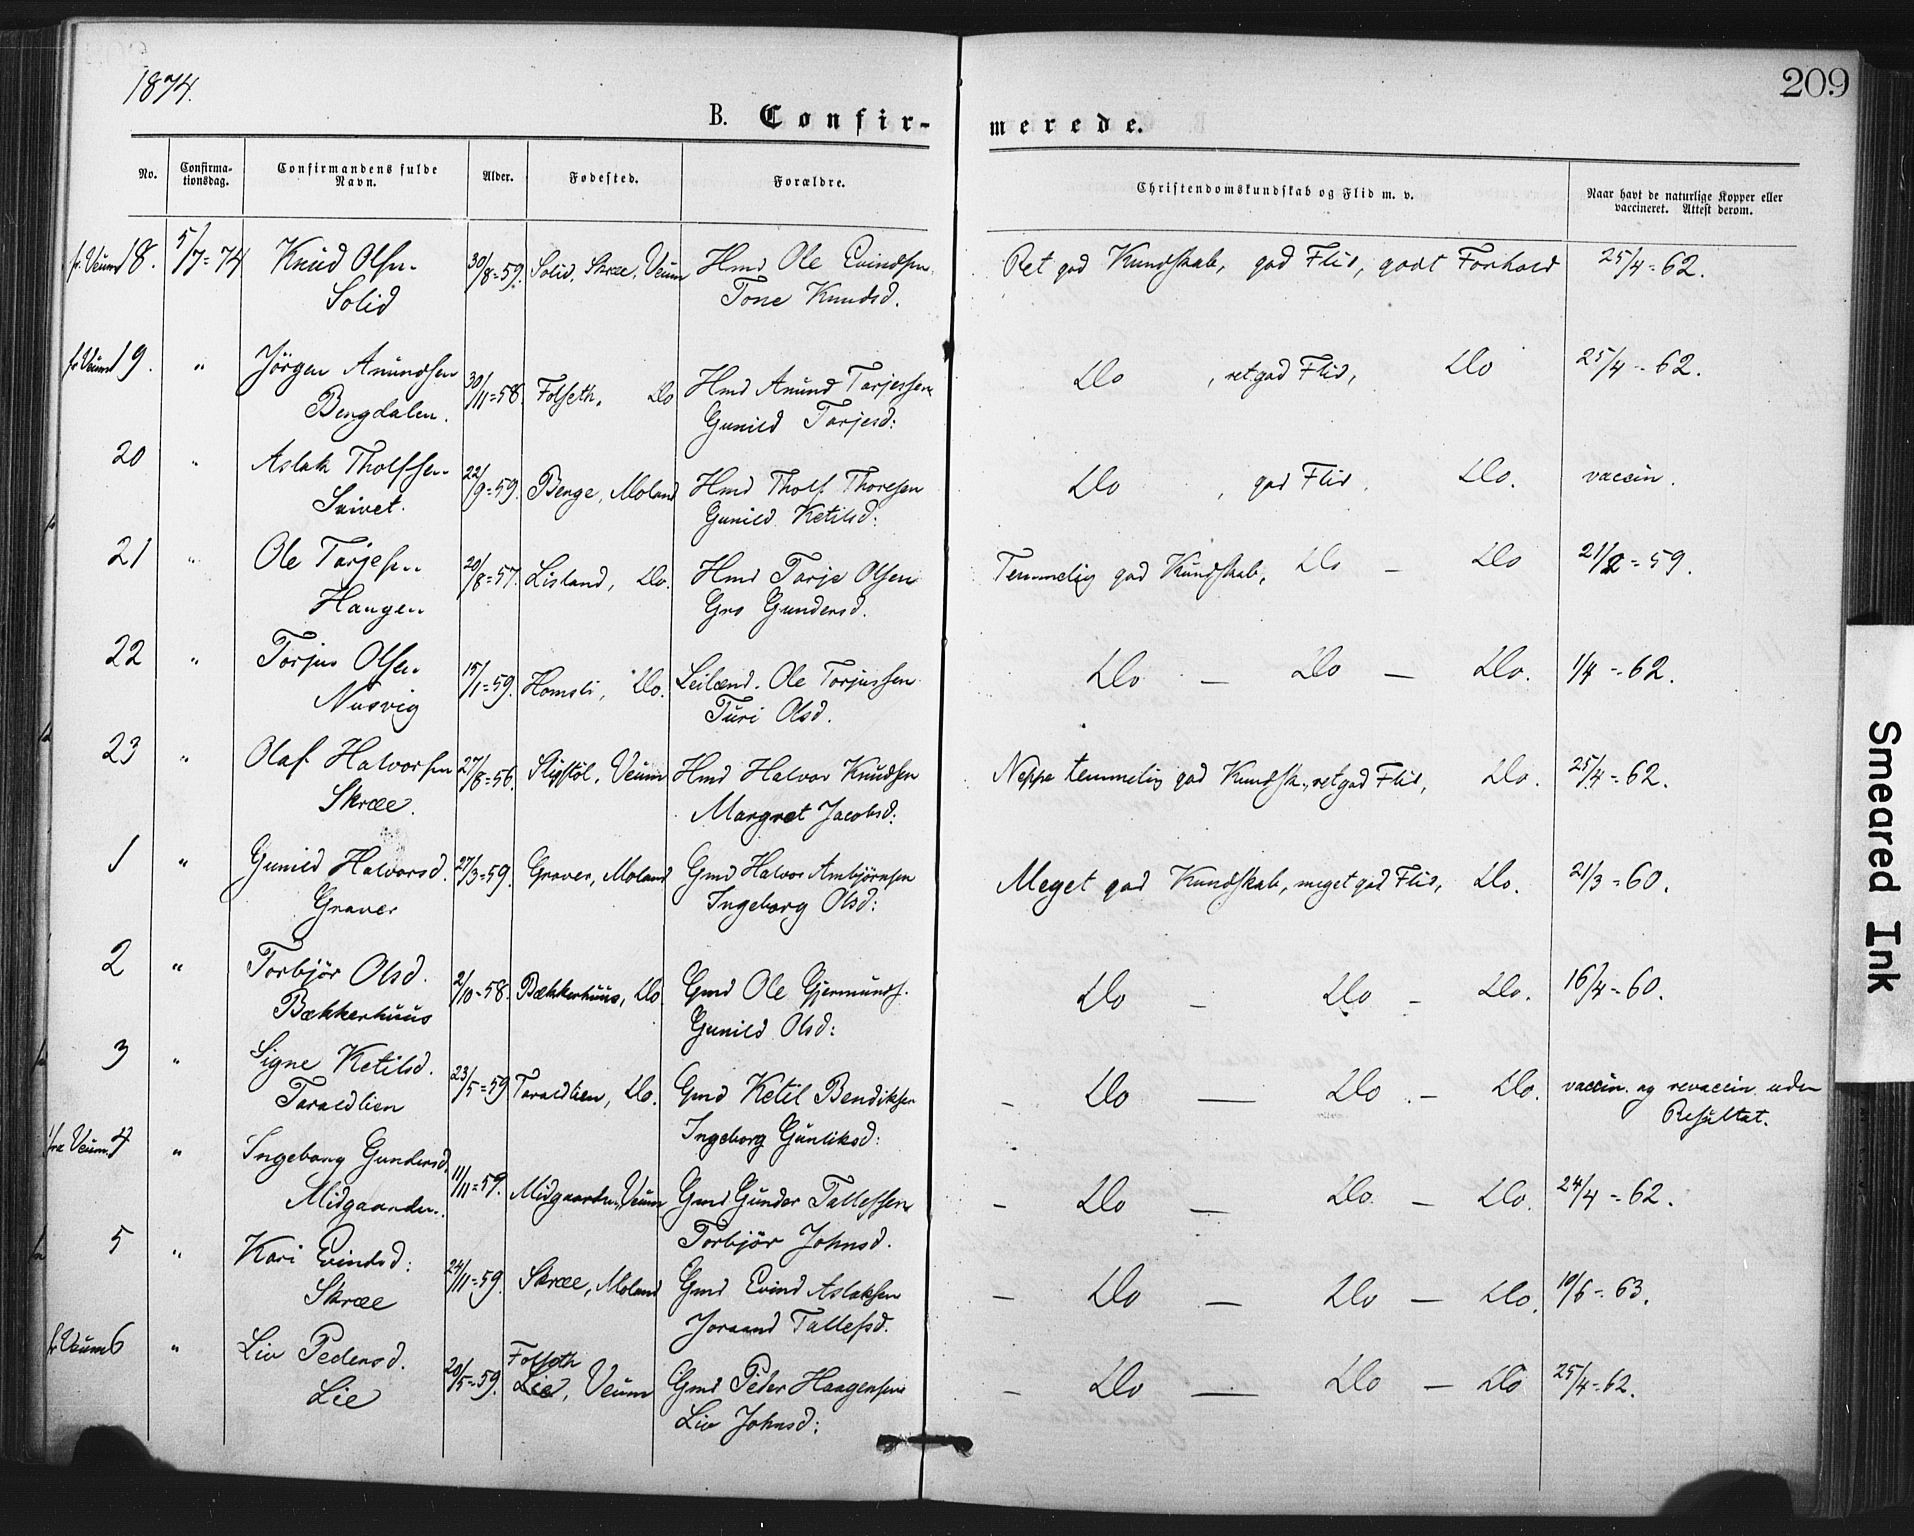 1874.
209
B. Confir-
merede.
No. Confirma-tionsdag. Confirmandens fulde Navn. Alder. Fødested. Forældre. Christendomskundskab og Flid m. v. Naar havt de naturlige Kopper eller vaccineret. Attest derom.
fr. Veum 18. 5/7=74 Knud Olsen 30/8=59. Solid, Skræe, Veum Hmd Ole Evindsen Ret god Kundskab, god Flid, godt Forhold 25/4=62.
Solid Tone Knudsd.
fr Veum 19. " Jörgen Anundsen 30/11=58. Folseth, Do Hmd Anund Tarjessen Do , ret god Flid, Do 25/4=62.
Bengdalen. Gunild Tarjesd:
20 " Aslak Tholfsen 22/9=59. Benge, Moland Hmd Tholf Thoresen Do , god Flid. Do. vaccin.
Gunild Ketilsd:
21 " Ole Tarjesen 20/8=57. Lisland, Do. Hmd Tarje Olsen Temmelig god Kundskab, Do — Do 21/2=59.
Haugen Gro Gundersd.
22 " Torjus Olsen 15/1=59. Homsli, Do. Leilænd. Ole Torjussen Do — Do — Do. 1/4=62.
Nusvig Turi Olsd.
23 " Olaf Halvorsen 27/8=56. Stigstöl, Veum Hmd Halvor Knudsen Neppe temmelig god Kundsk., ret god Flid, Do. 25/4=62.
Skræe. Margret Jacobsd:
1 " Gunild Halvorsd. 27/3=59. Graver, Moland Gmd Halvor Ambjörnsen Meget god Kundskab, meget god Flid, Do. 21/3=60.
Graver Ingeborg Olsd:
2 " Torbjör Olsd. 2/10=58. Bækkerhuus, Do Gmd Ole Gjermunds. Do — Do — Do. 16/4=60.
Bækkerhuus Gunild Olsd:
3 " Signe Ketilsd. 23/5=59 Taraldlien, Do. Gmd Ketil Bendiksen — Do — Do — Do. vaccin. og revaccin. uden
Taraldlien Ingeborg Gunliksd: Resultat.
fra Veum 4 " Ingeborg Gundersd. 11/11=59. Midgaarden, Veum Gmd Gunder Tallefsen — Do — Do — Do. 24/4=62.
Midgaarden. Torbjör Johnsd.
5 " Kari Evindsd: 24/11=59. Skræe, Moland Gmd Evind Aslaksen — Do — Do — Do. 10/6=63.
Skræe Joraand Tallefsd.
fr Veum 6 " Liv Pedersd. 20/5=59. Folseth
Lie, Veum Gmd Peder Haagensen — Do — Do — Do 25/4=62.
Lie Liv Johnsd:
Smeared Ink